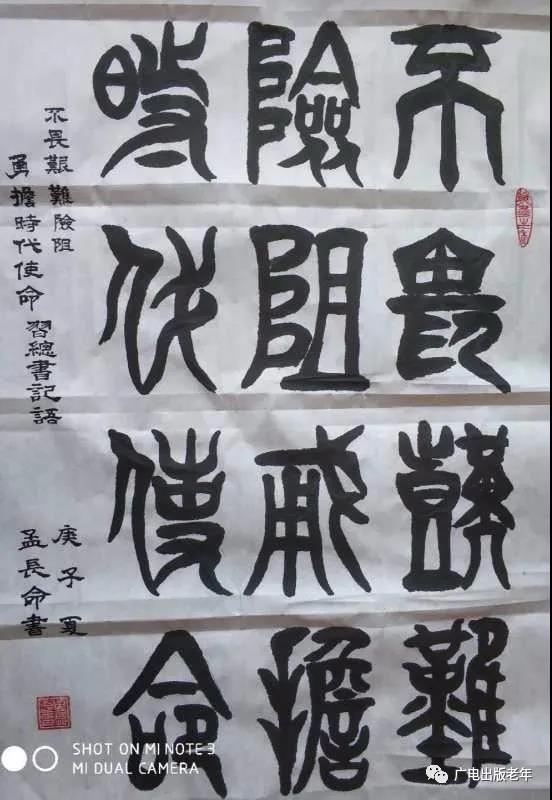 不畏艱難
險阻甬擔
時代使命
不畏艱難險阻
勇擔時代使命 習總書記語
庚子夏
孟長命書
SHOT ON MI NOTE 3
MI DUAL CAMERA
广电出版老年